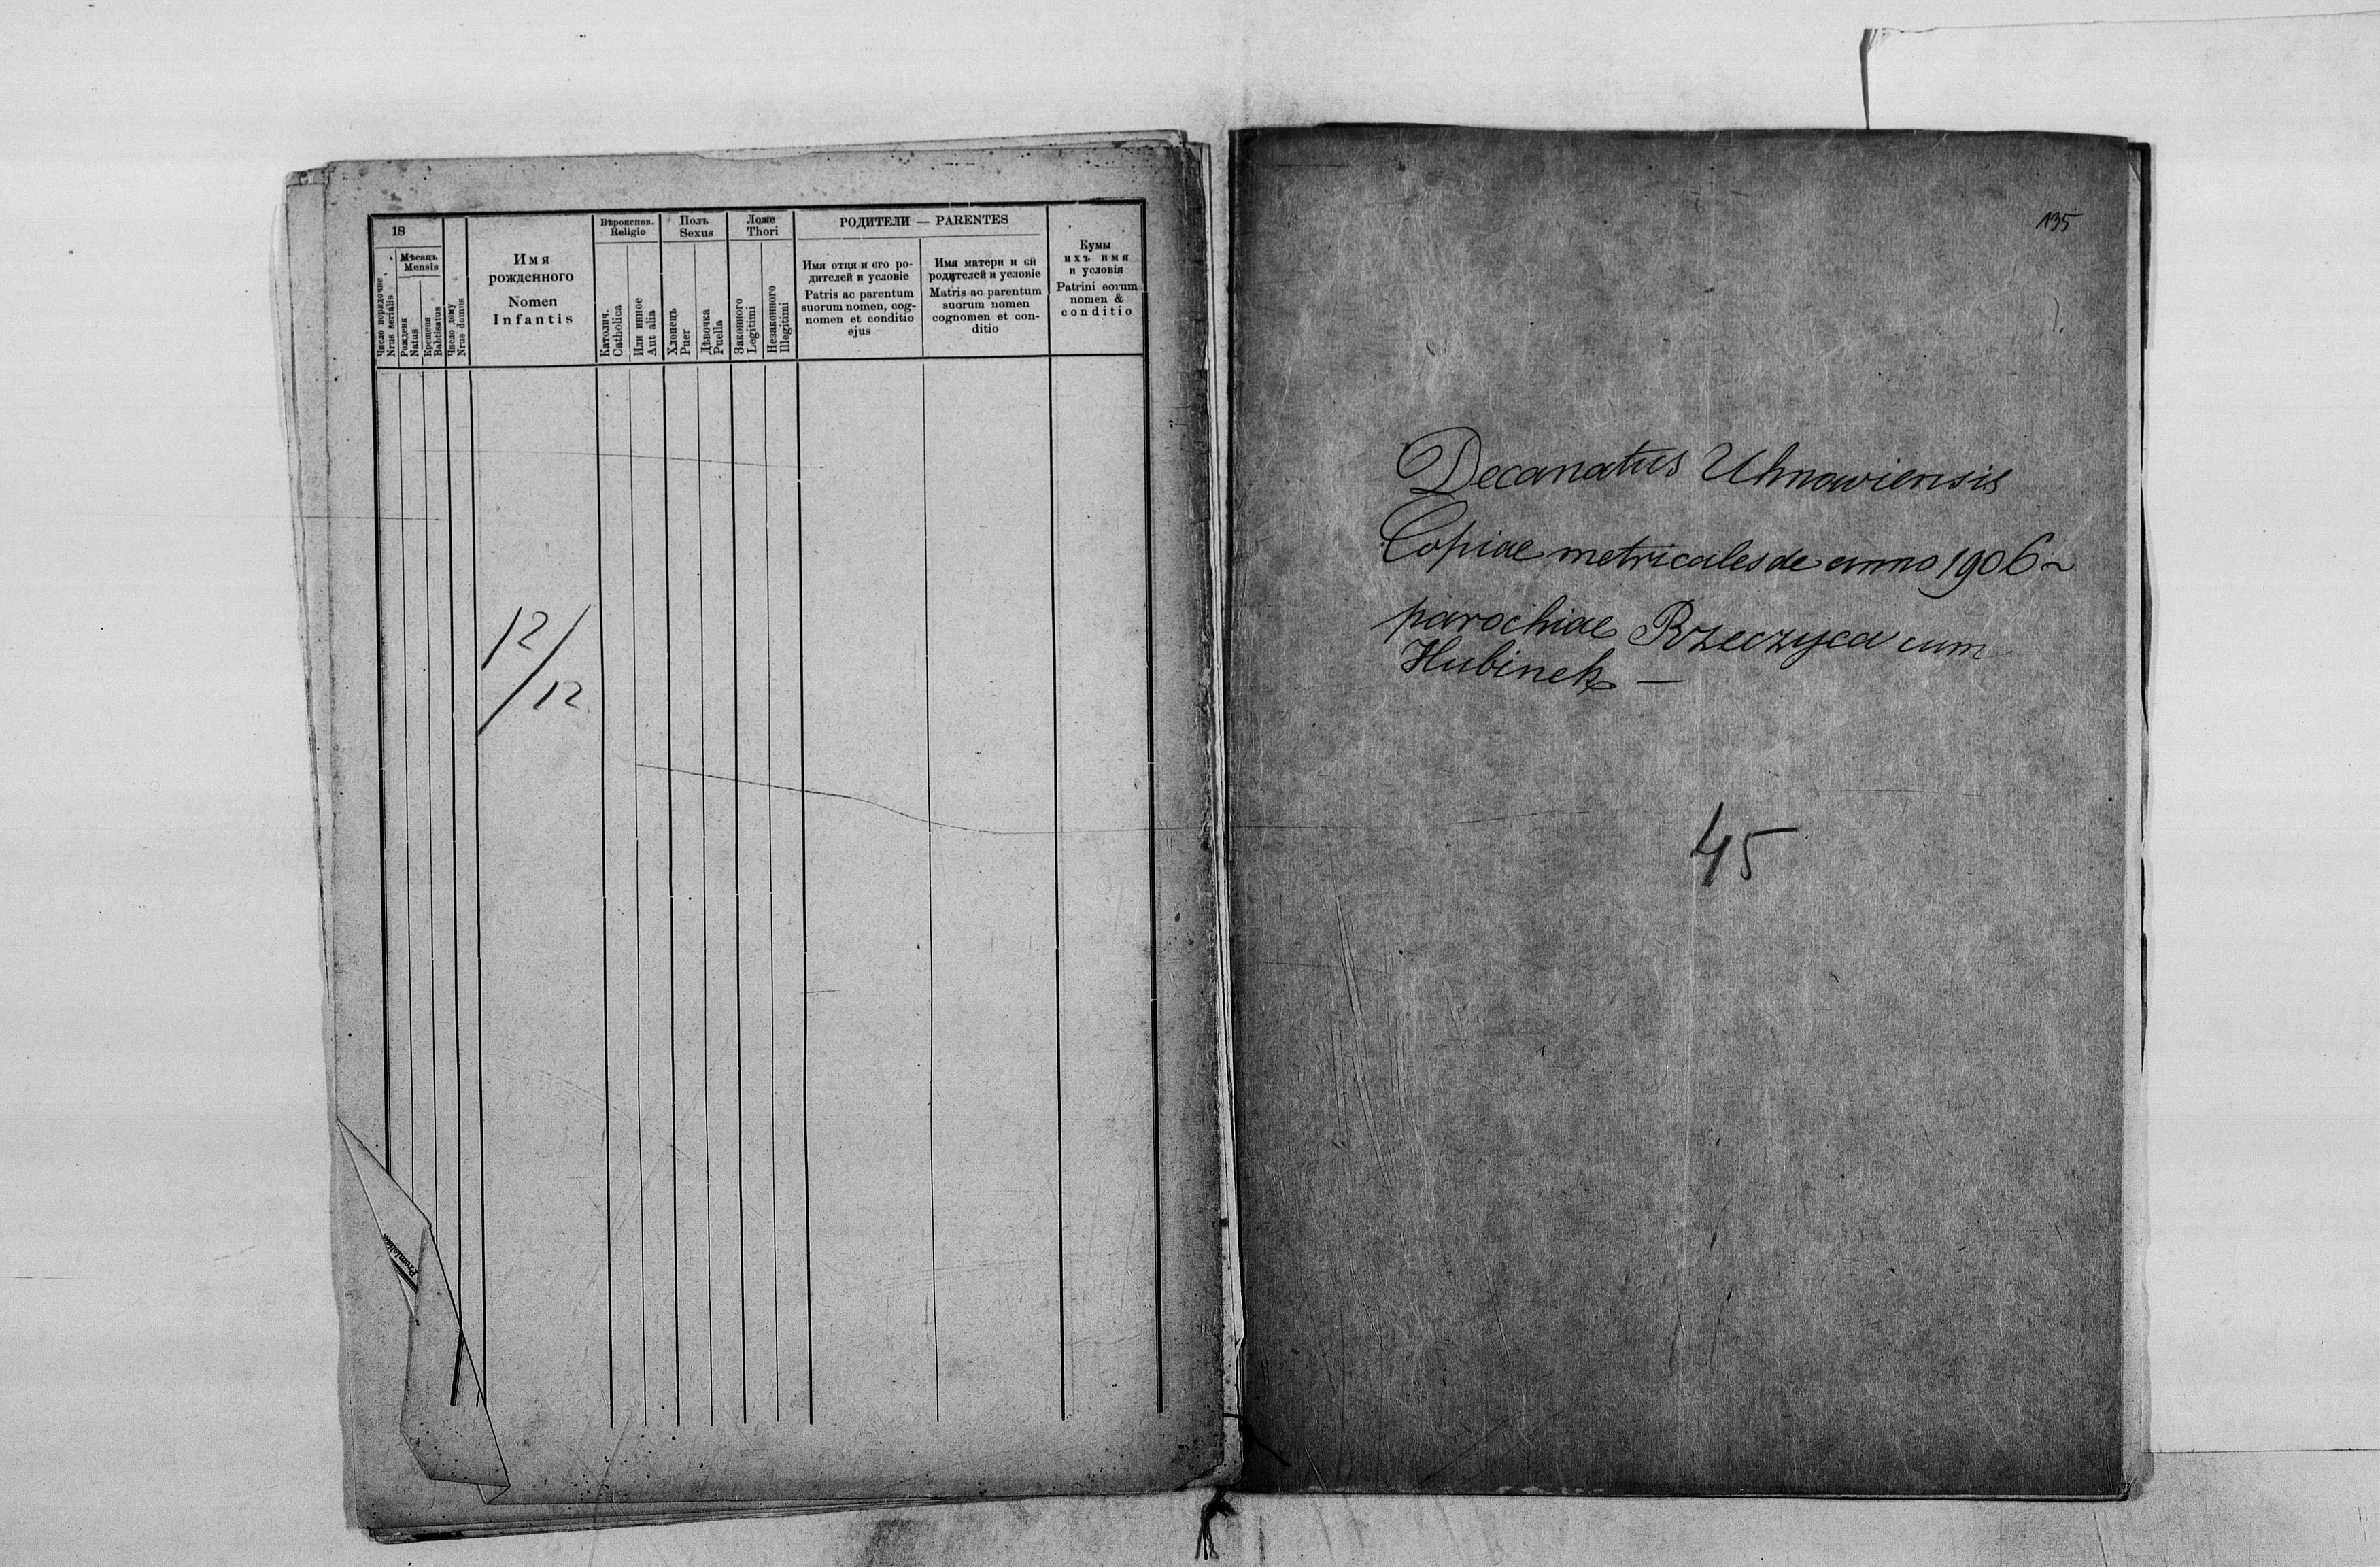 18
Мѣсяць
Mensis
Число порядочне
Nrus serialis
Рожденя
Natus
Крещеня
Babtisatus
Число дому
Nrus domus
Имя
рожденного
Nomen
Infantis
Вѣроиспов.
Religio
Католич.
Catholica
Или инное
Aut alia
Полъ
Sexus
Хлопець
Puer
Дѣвочка
Puella
Ложе
Thori
Законного
Legitimi
Незаконного
Illegitimi
РОДИТЕЛИ — PARENTES
Имя отця и его ро-
дителей и условіе
Patris ac parentum
suorum nomen, cog-
nomen et conditio
ejus
Имя матери и ей
родителей и условіе
Matris ac parentum
suorum nomen
cognomen et con-
ditio
Кумы
ихъ имя
и условія
Patrini eorum
nomen &
conditio
12/12
135
Decanatus Uhnowiensis
Copiae metricales de anno 1906
parochiae Rzeczyca cum
Hubinek —
45